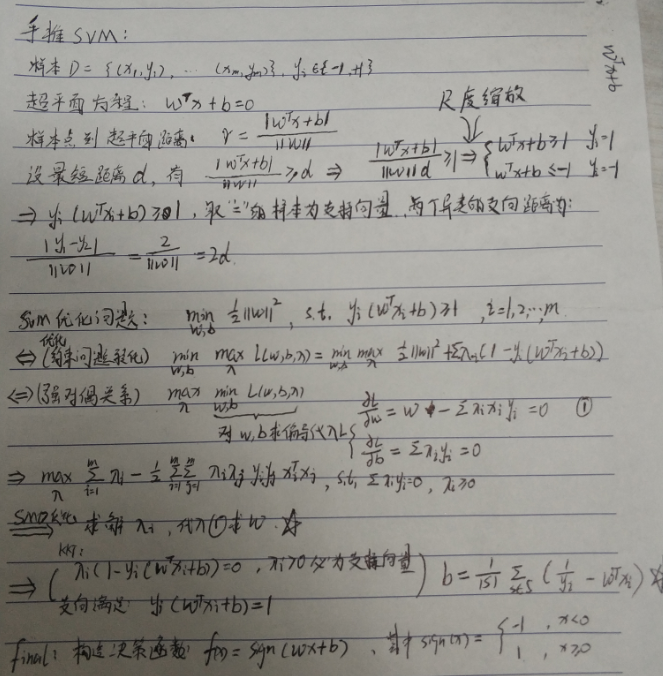 手推SVM:
样本D = {(x₁,y₁), ... (xₘ,yₘ)}, yᵢ∈{-1,+1}
wᵀx+b
超平面方程: wᵀx + b = 0
尺度缩放
样本点到超平面距离: r = |wᵀx+b| / ||w||
设最短距离d, 有 |wᵀx+b| / ||w|| ≥ d ⇒ |wᵀx+b| / ||w||d ≥ 1 ⇒ { wᵀx+b ≥ 1 yᵢ=1
wᵀx+b ≤ -1 yᵢ=-1
⇒ yᵢ(wᵀxᵢ+b) ≥ 1, 取"="的样本为支持向量, 两个异类的支向距离为:
|y₁-y₂| / ||w|| = 2 / ||w|| = 2d.
SVM优化问题: min w,b ½||w||², s.t. yᵢ(wᵀxᵢ+b) ≥ 1, i=1,2,...,m
优化
⇔ (约束问题转化) min w,b max λ L(w,b,λ) = min w,b max λ ½||w||² + Σλᵢ(1-yᵢ(wᵀxᵢ+b))
⇔ (强对偶关系) max λ min w,b L(w,b,λ)
对w,b求偏导代入L { ∂L/∂w = w - Σλᵢxᵢyᵢ = 0 ①
∂L/∂b = Σλᵢyᵢ = 0
⇒ max λ Σᵢ₌₁ᵐ λᵢ - ½ Σᵢ₌₁ᵐ Σⱼ₌₁ᵐ λᵢλⱼyᵢyⱼxᵢᵀxⱼ, s.t. Σλᵢyᵢ=0, λᵢ≥0
SMO优化 ⇒ 求解λᵢ, 代入①求w. ☆
KKT:
⇒ ( λᵢ(1-yᵢ(wᵀxᵢ+b))=0, λᵢ>0必为支持向量
支向满足 yᵢ(wᵀxᵢ+b)=1 ) b = 1/|S| Σ s∈S (1/yᵢ - wᵀxᵢ) ☆
final: 构造决策函数 f(x) = sgn(wx+b), 其中 sign(x) = { -1, x<0
1, x≥0